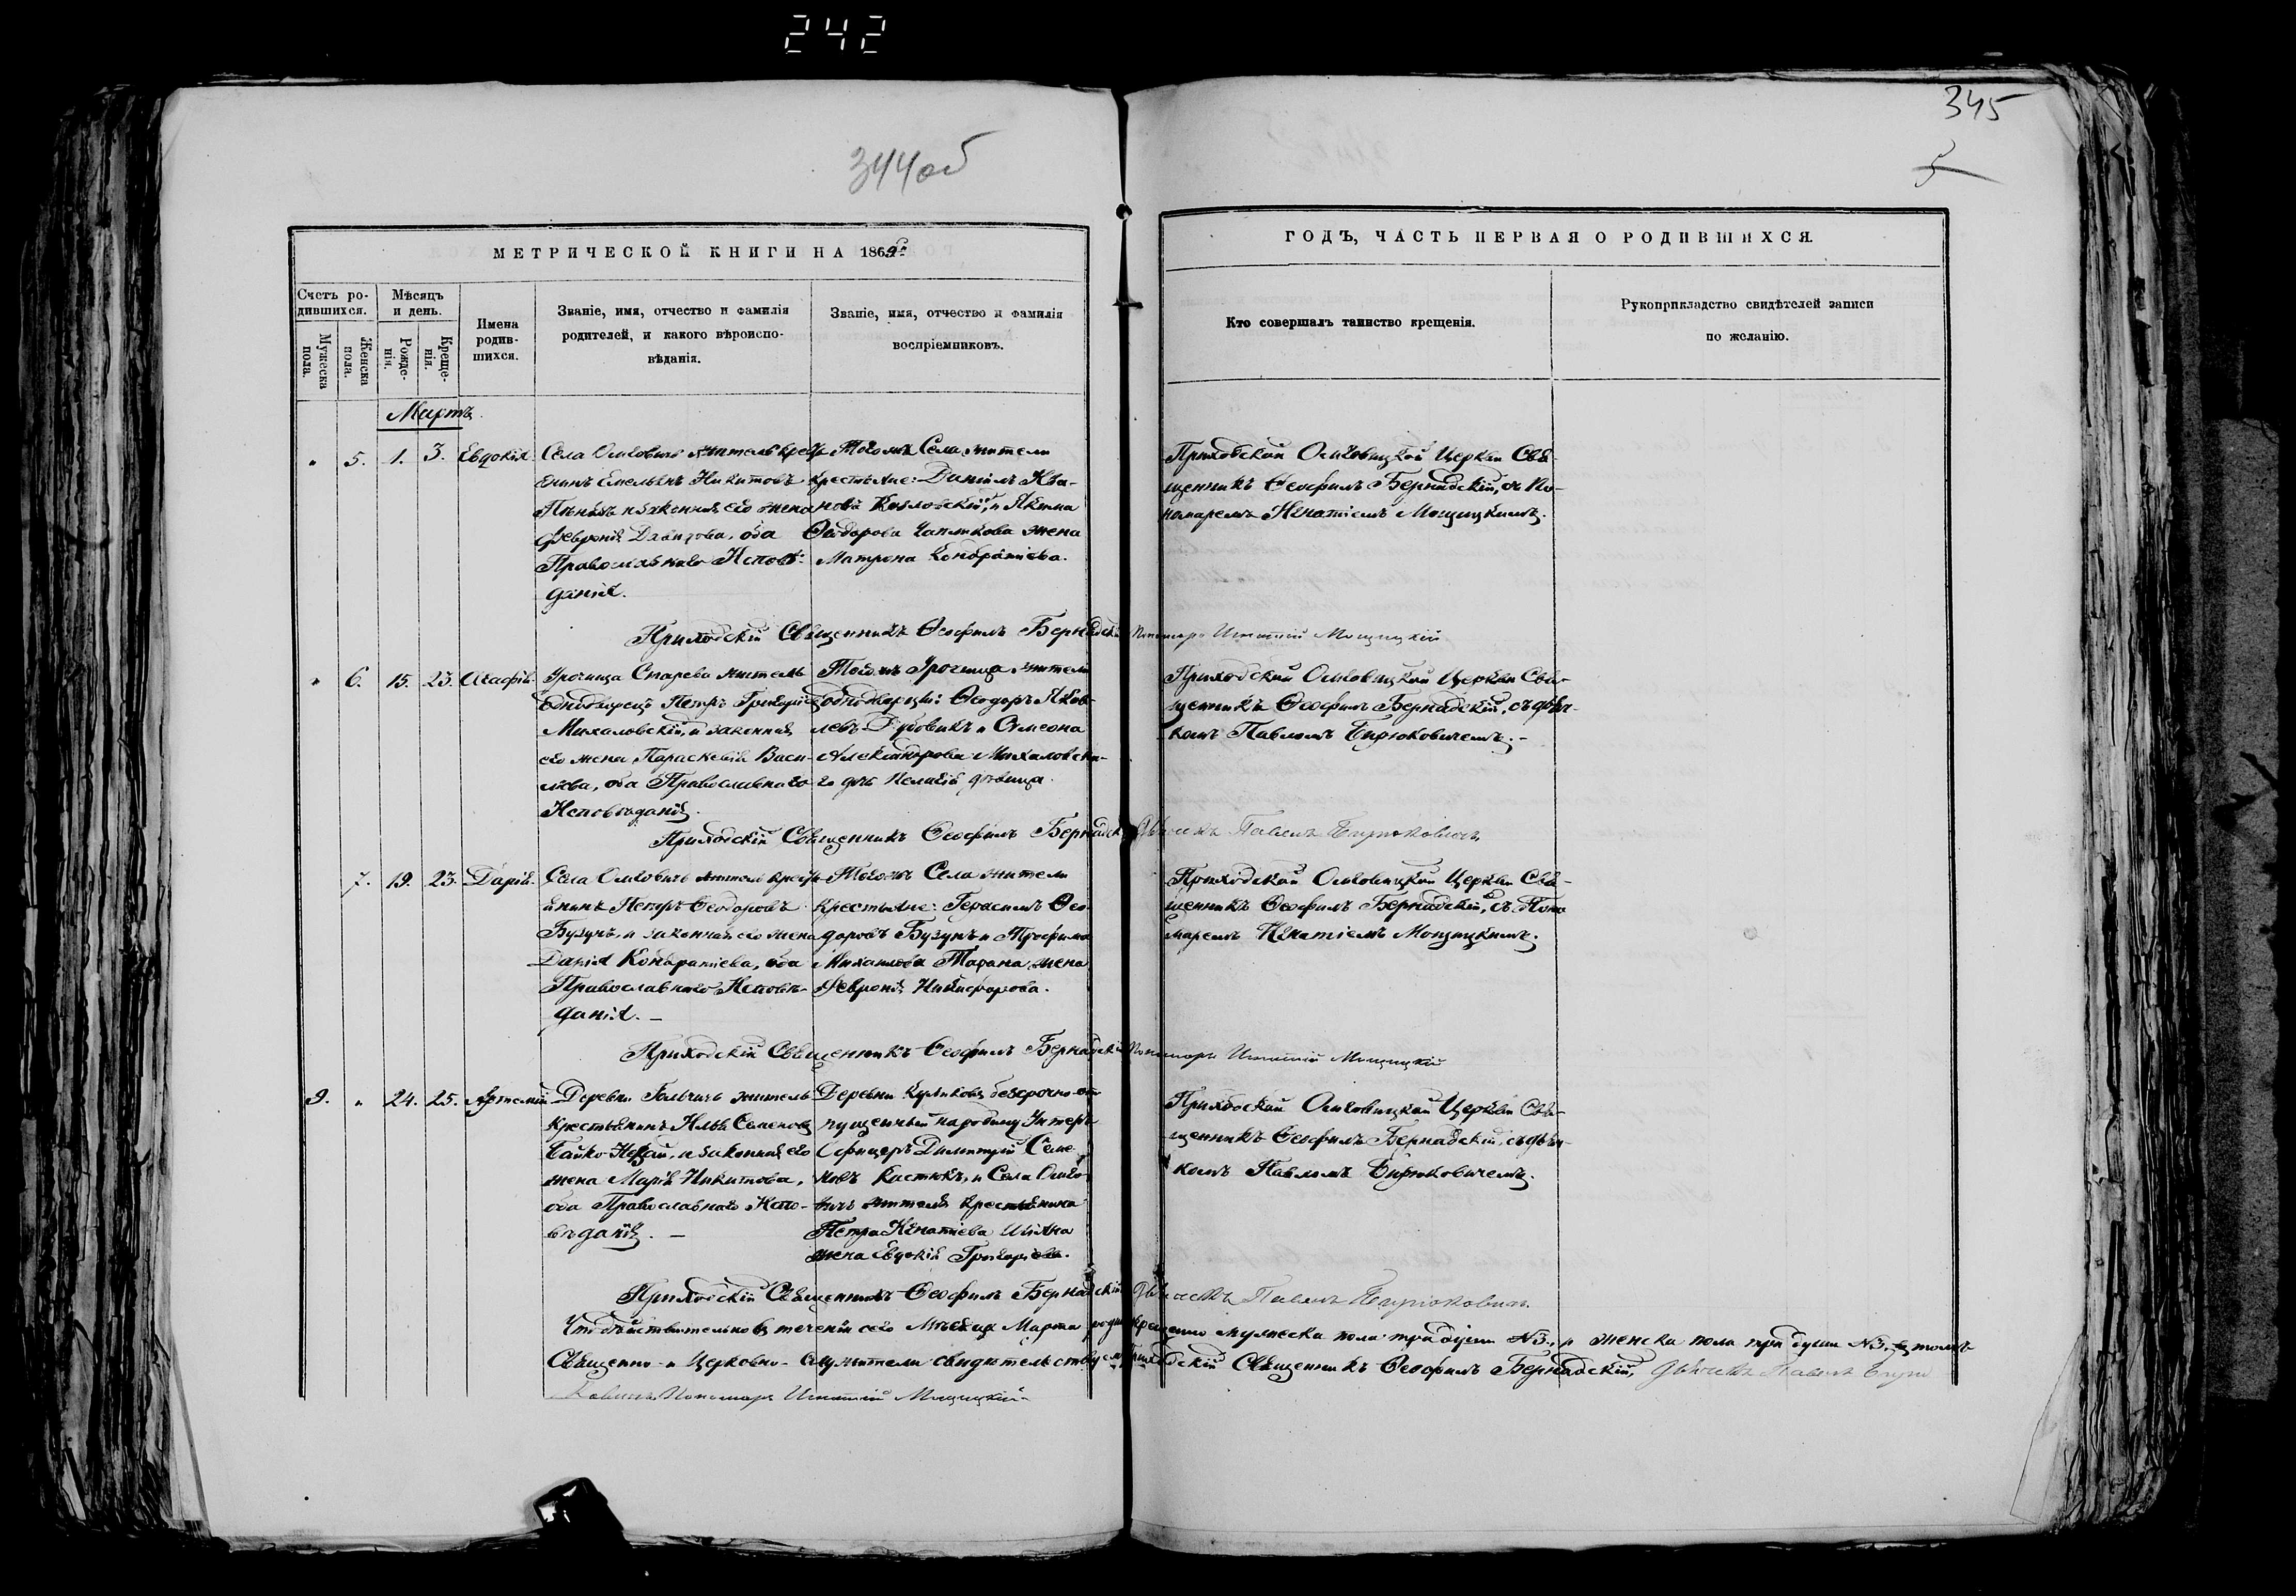 242
344об
345
5
МЕТРИЧЕСКОЙ КНИГИ НА 1869й
ГОДЪ, ЧАСТЬ ПЕРВАЯ О РОДИВШИХСЯ.
Счетъ ро-
дившихся.
Мужеска
пола.
Женска
пола.
Мѣсяцъ
и день.
Рожде-
нія.
Креще-
нія.
Имена
родив-
шихся.
Званіе, имя, отчество и фамилія
родителей, и какого вѣроиспо-
вѣданія.
Званіе, имя, отчество и фамилія
воспріемниковъ.
Кто совершалъ таинство крещенія.
Рукоприкладство свидѣтелей записи
по желанію.
Мартъ.
" 5. 1. 3. Евдокія
Села Ольговичъ житель крестья-
нинъ Емельянъ Никитовъ
и законная его жена
Февронія Давидова, оба
Православнаго Исповѣ-
данія.
Тогожъ Села жители
крестьяне: Даніилъ Ива-
новъ Козловскій, и Якима
Ѳеодорова жена
Матрона Кондратіева.
Приходской Ольговицкой Церкви Свя-
щенникъ Ѳеофилъ Бернадскій, съ По-
номаремъ Игнатіемъ Мощицкимъ.
Приходскій Священникъ Ѳеофилъ Бернадскій Пономарь Игнатій Мощицкій
" 6. 15. 23. Агафія.
Урочища Старева житель
Однодворецъ Петръ Григорьевъ
Михаловскій, и законная
его жена Параскевія Васи-
льева, оба Православнаго
Исповѣданія.
Тогожъ Урочища жители
однодворцы: Ѳеодоръ Яков-
левъ Дубовикъ и Симеона
Александрова Михаловска-
го дочь Пелагія дѣвица.
Приходской Ольговицкой Церкви Свя-
щенникъ Ѳеофилъ Бернадскій, съ дьяч-
комъ Павломъ Бирюковичемъ.-
Приходскій Священникъ Ѳеофилъ Бернадскій Дьячекъ Павелъ Бирюковичъ
7. 19. 23. Дарія.
Села Ольговичъ житель крестья-
нинъ Петръ Ѳеодоровъ
Бузунъ, и законная его жена
Дарія Кондратіева, оба
Православнаго Исповѣ-
данія. —
Тогожъ Села жители
крестьяне: Герасимъ Ѳео-
доровъ Бузунъ и Трофима
Михаилова Тарана жена
Февронія Никифорова.
Приходской Ольговицкой Церкви Свя-
щенникъ Ѳеофилъ Бернадскій, съ Поно
маремъ Игнатіемъ Мощицкимъ.
Приходскій Священникъ Ѳеофилъ Бернадскій Пономарь Игнатій Мощицкій
9. " 24. 25. Артемій
Деревни Гольчичъ житель
Крестьянинъ Илья Семеновъ
и законная его
жена Марія Никитова,
оба Православнаго Испо-
вѣданія. —
Деревни Куликовъ безсрочно от
пущенный на родину Унтеръ
Офицеръ Димитрій Семе-
новъ Костюкъ, и Села Ольго-
вичъ жителя крестьянина
Петра Игнатіева
жена Евдокія Григорьева.
Приходской Ольговицкой Церкви Свя-
щенникъ Ѳеофилъ Бернадскій, съ дьяч-
комъ Павломъ Бирюковичемъ.
Приходскій Священникъ Ѳеофилъ Бернадскій Дьячекъ Павелъ Бирюковичъ.
Что дѣйствительно въ теченіи сего Мѣсяца Марта крещено мужеска пола три души №3., и женска пола три души №3. въ томъ
Священно- и Церковно- служители свидѣтельствуемъ Приходскій Священникъ Ѳеофилъ Бернадскій, Дьячекъ Павелъ Бирю
ковичъ, Пономарь Игнатій Мощицкій